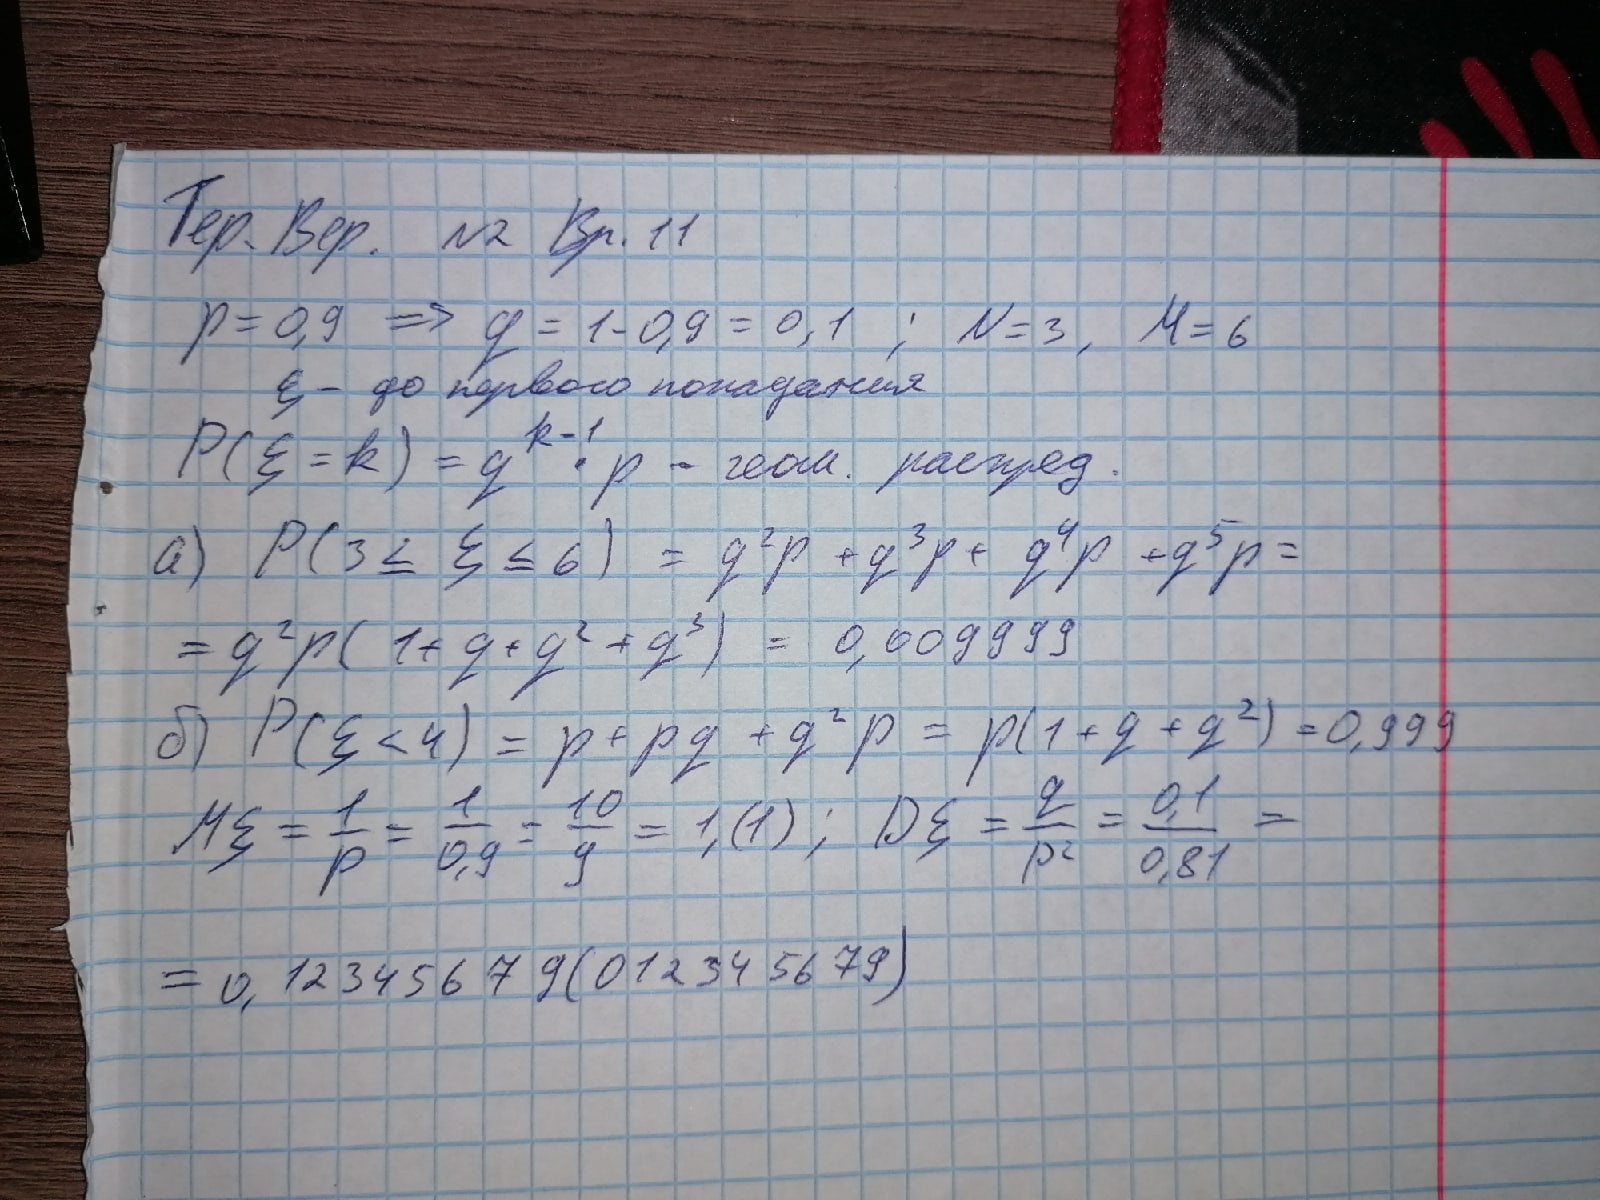 Тер. Вер. №2 Вр. 11
p = 0,9 => q = 1 - 0,9 = 0,1 ; N = 3, M = 6
ξ - до первого попадания
P(ξ = k) = q^{k-1} · p - геом. распред.
а) P(3 ≤ ξ ≤ 6) = q²p + q³p + q⁴p + q⁵p =
= q²p(1 + q + q² + q³) = 0,009999
б) P(ξ < 4) = p + pq + q²p = p(1 + q + q²) = 0,999
Mξ = 1/p = 1/0,9 = 10/9 = 1,(1) ; Dξ = q/p² = 0,1/0,81 =
= 0,12345679(012345679)